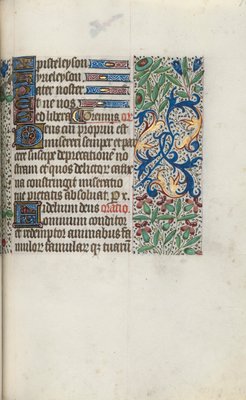 Xpisteleyson
Kyrieleyson
Pater noster
Et ne nos
Sed libera Oremus or
Deus cui proprium est
misereri semper et par
cere suscipe deprecatione no
stram et quos delictor cathe
na constringit miseratio
tue pietatis absoluat P x
Fidelium deus oracio
omnium conditor
et redemptor animabus fa
mulor famular q tuaru